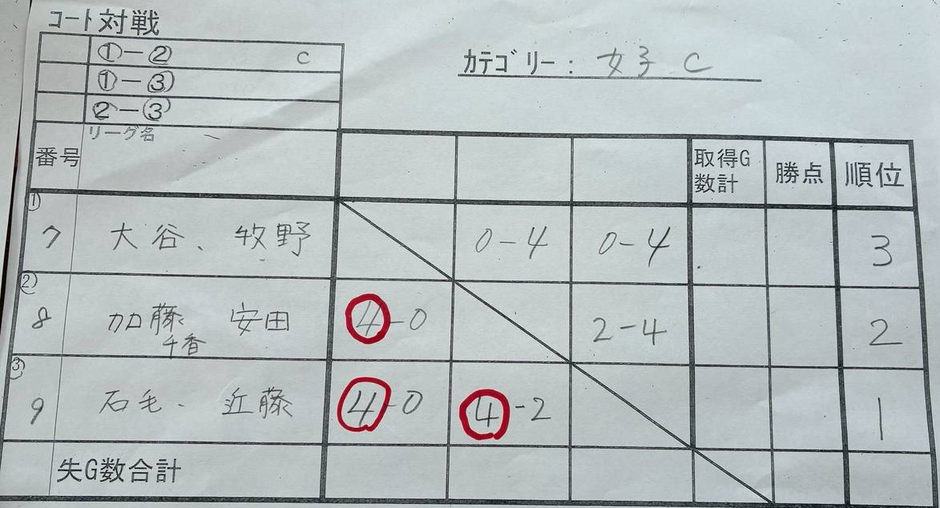 コート対戦
①－② C
①－③
②－③
カテゴリー： 女子 C
番号 リーグ名 取得G数計 勝点 順位
① 7 大谷、牧野 0-4 0-4 3
② 8 加藤千香 安田 4-0 2-4 2
③ 9 石毛、近藤 4-0 4-2 1
失G数合計